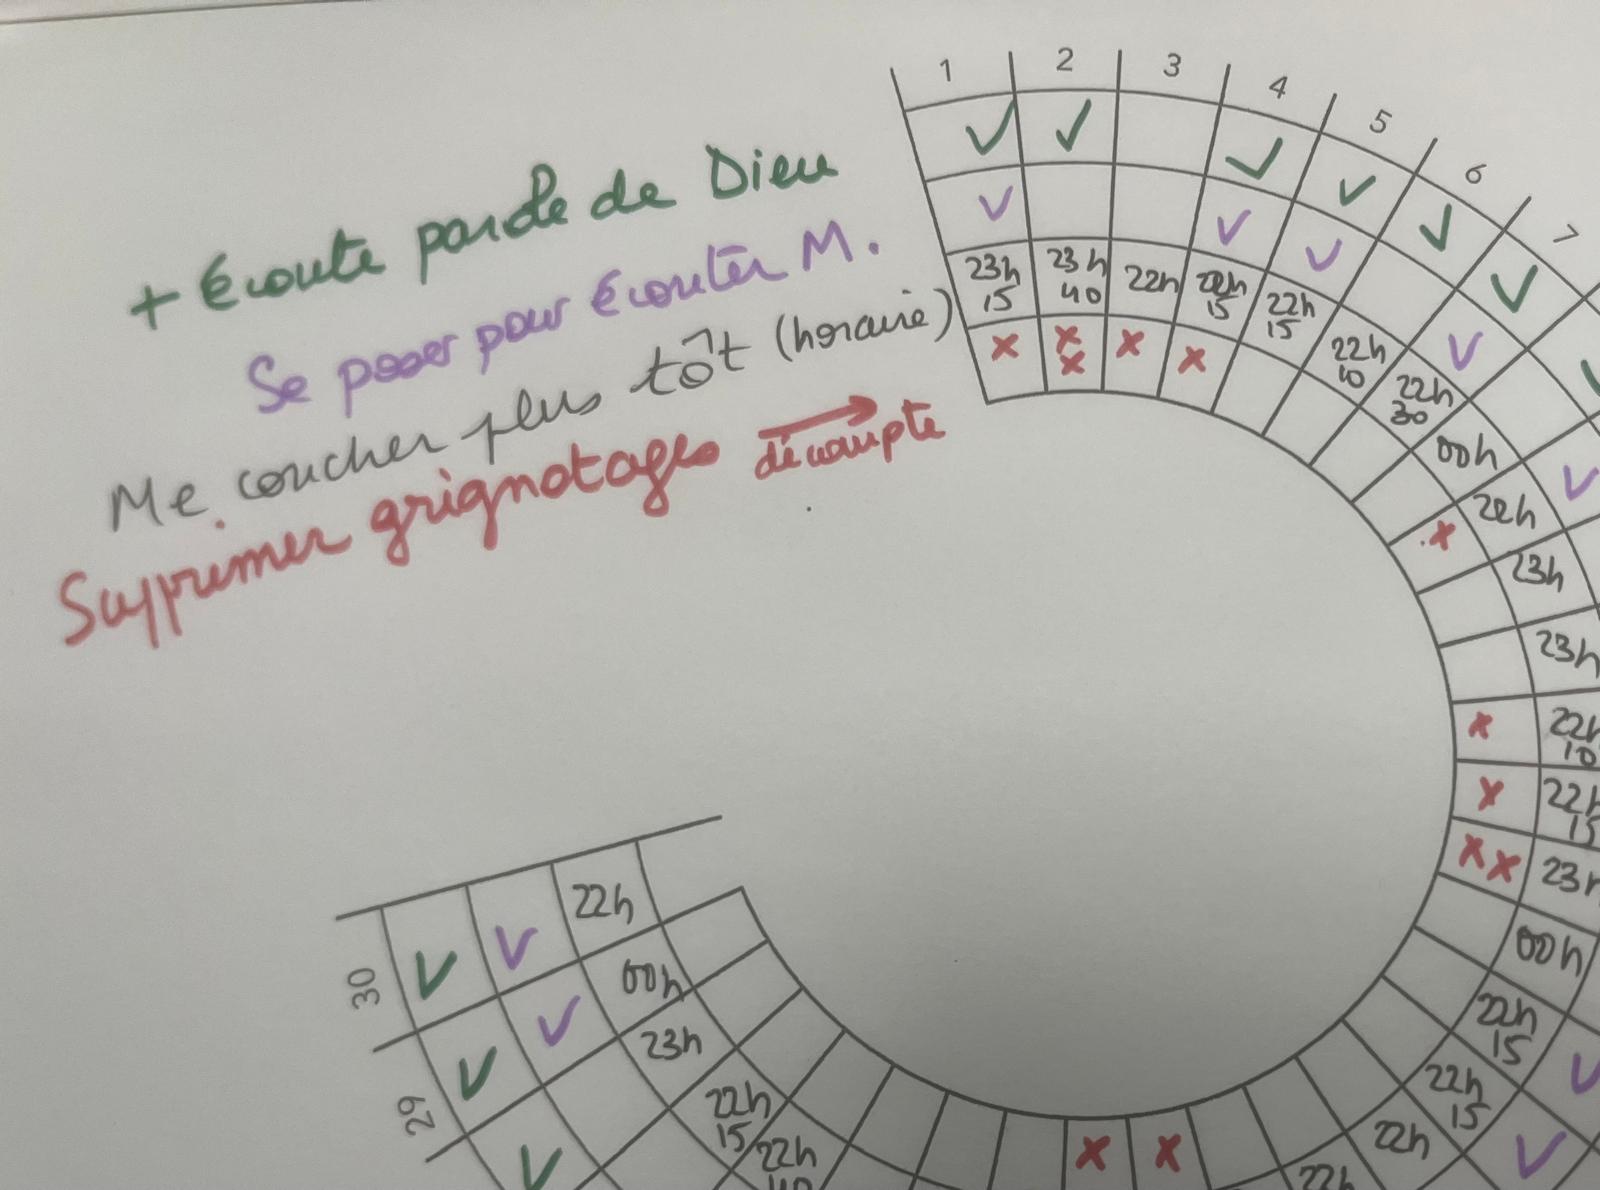 + Écoute parole de Dieu
Se poser pour écouter M.
Me coucher plus tôt (horaire)
Supprimer grignotages → décompte
1 2 3 4 5 6 7
✓ ✓ ✓ ✓ ✓ ✓ ✓
✓ ✓ ✓ ✓ ✓
23h 15
23h 40
22h
22h 15
22h 15
22h 10
22h 30
00h
22h
23h
23h
22h 10
22h 15
23h
00h
22h 15
22h 15
22h
22h
x xx x x
x
x
x
x x
x x
30 ✓ ✓ 22h
29 ✓ ✓ 00h
✓ 23h
22h 15
22h 40
✓
✓